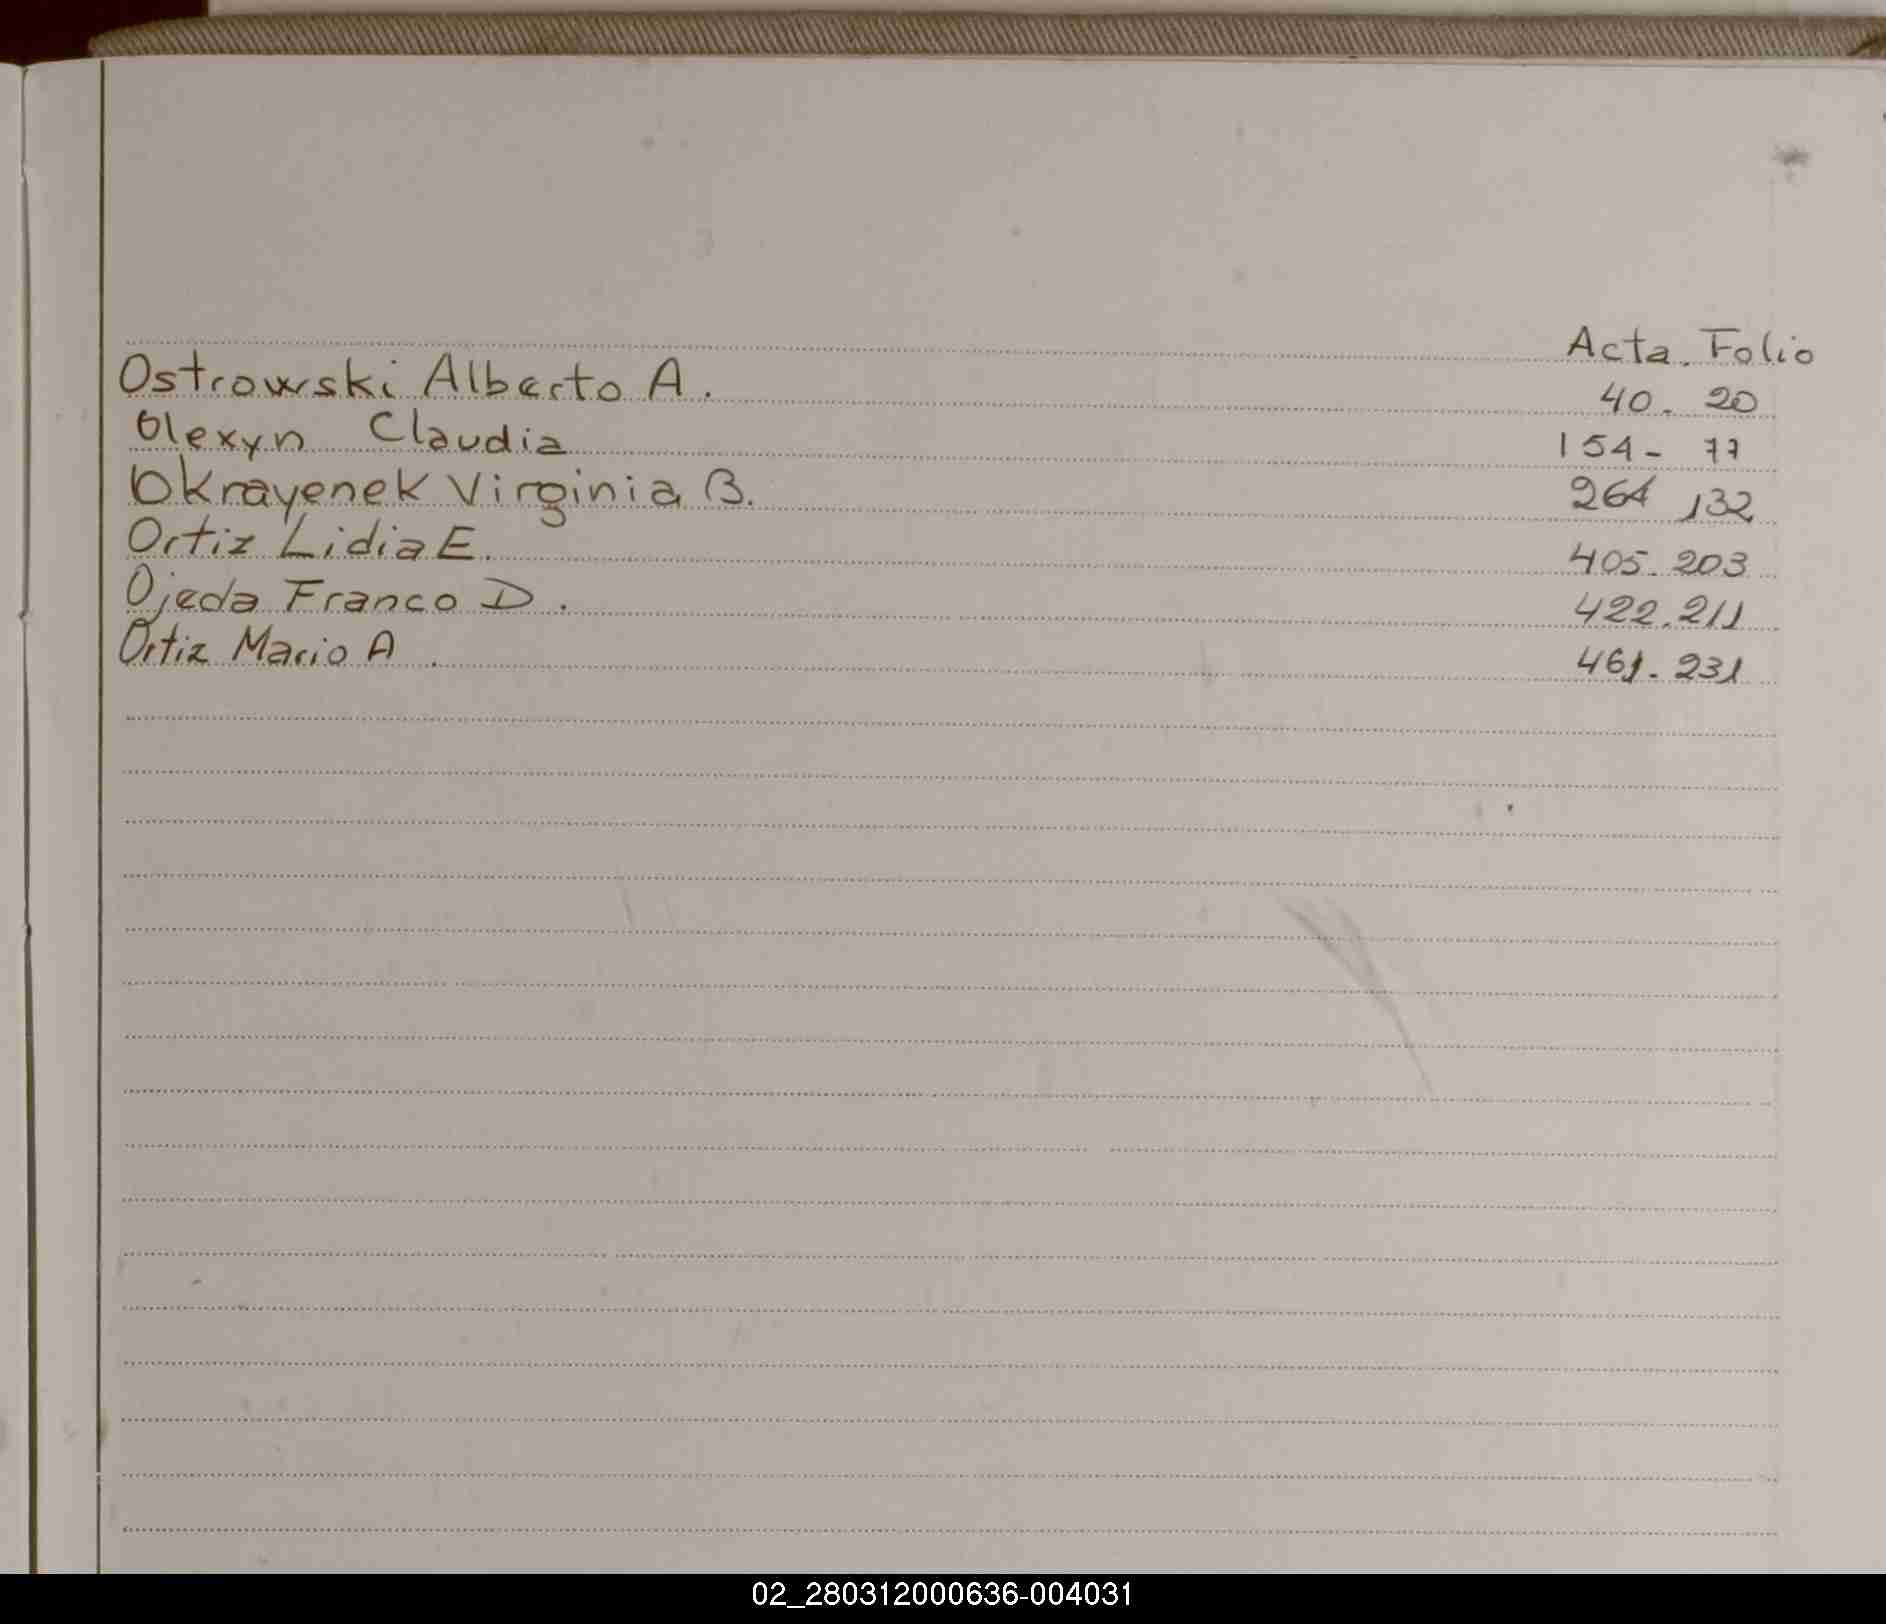 Acta. Folio
Ostrowski Alberto A. 40. 20
Olexyn Claudia 154- 77
Okrayenek Virginia B. 264 132
Ortiz Lidia E. 405. 203
Ojeda Franco D. 422. 211
Ortiz Mario A. 461. 231
02_280312000636-004031